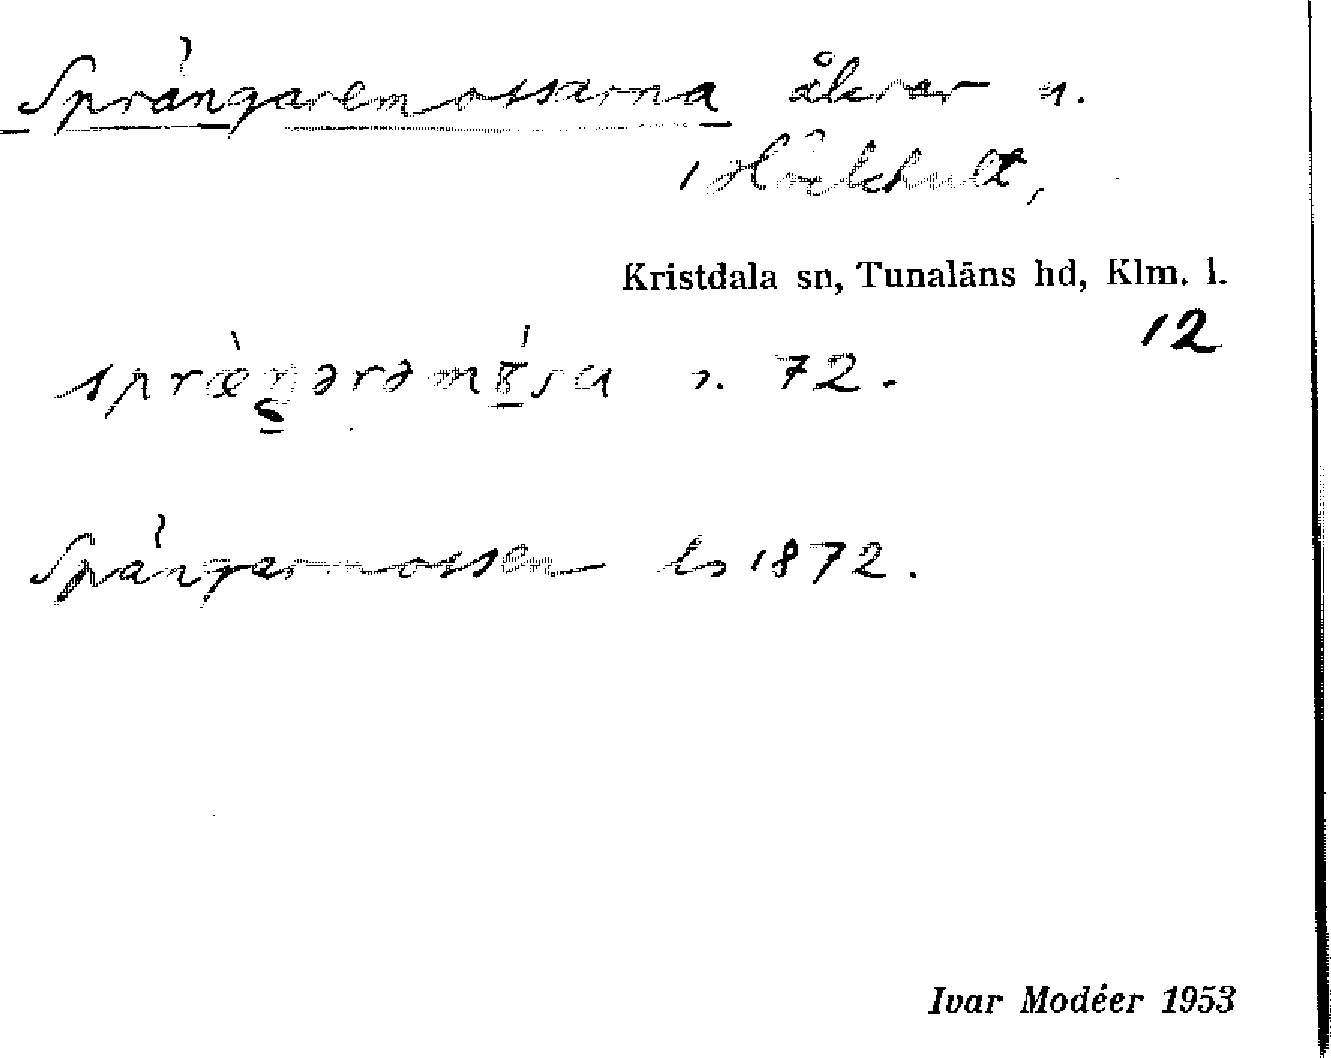 Språngaremossarna åkrar n.
i Håkhult,
Kristdala sn, Tunaläns hd, Klm. l.
12
s. 72.
Spångarmossen ls 1872.
Ivar Modéer 1953